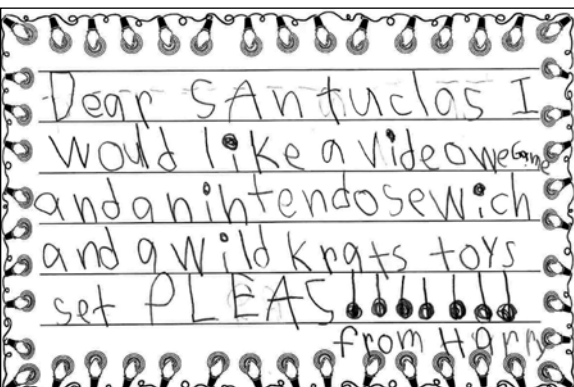 Dear SAntuclas I
would like a Videowe Game
and a nintendosewich
and a wild krats toys
set PLEAS!!!!!!!
from Harry